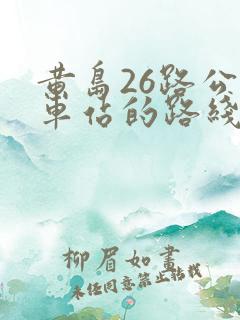 黄岛26路公
车佔的路线
柳眉如畫
未经同意禁止转载